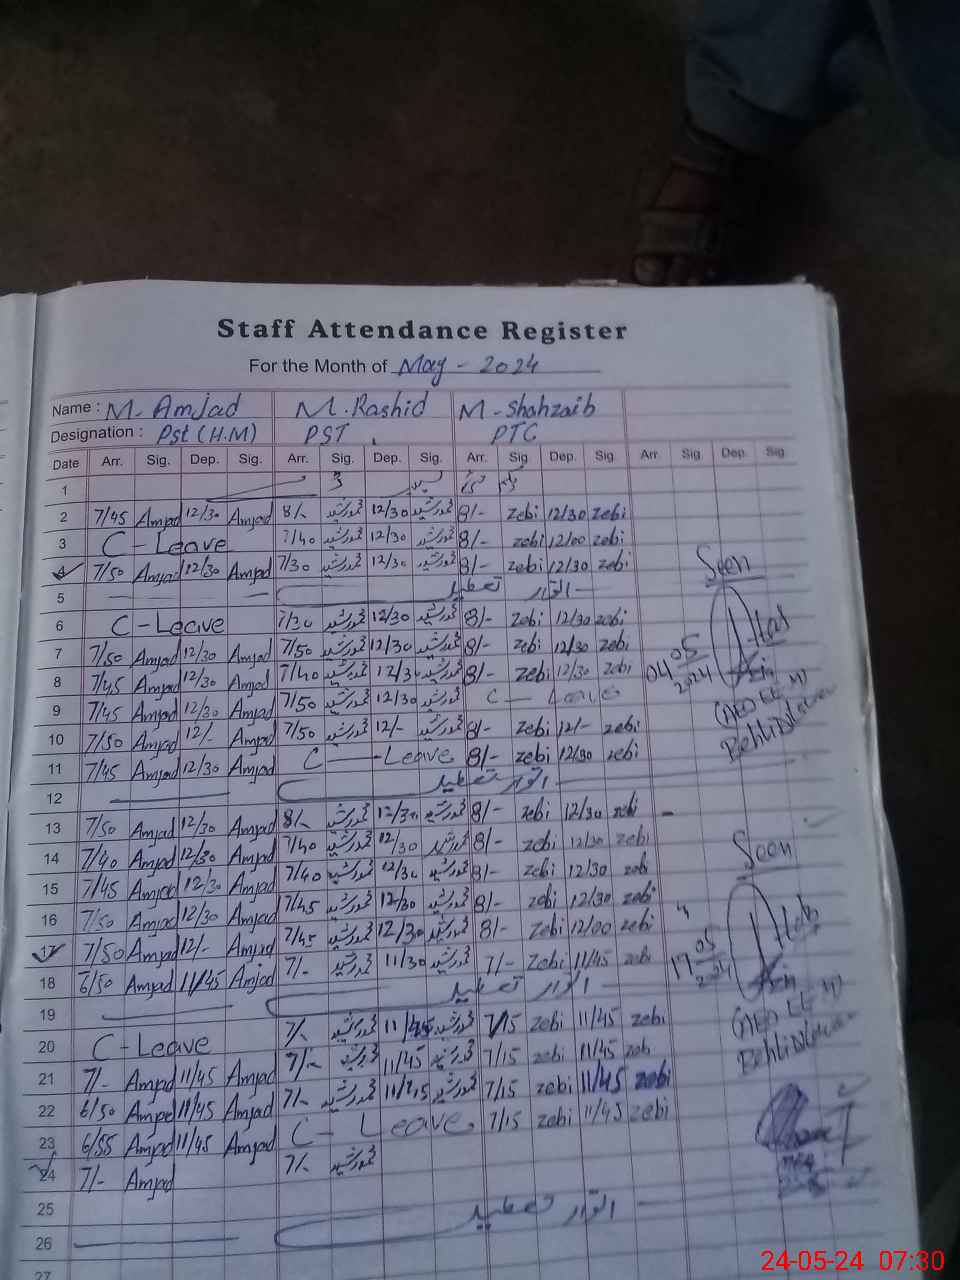 Staff Attendance Register
For the Month of May - 2024
Name : M. Amjad M. Rashid M- Shahzaib
Designation : Pst (H.M) PST PTC
Date Arr. Sig. Dep. Sig. Arr. Sig. Dep. Sig. Arr. Sig. Dep. Sig. Arr. Sig. Dep. Sig.
1
2 7/45 Amjad 12/30 Amjad 8/- خورشید 12/30 خورشید 8/- zebi 12/30 zebi
3 C - Leave 7/40 خورشید 12/30 خورشید 8/- zebi 12/00 zebi
4 7/50 Amjad 12/30 Amjad 7/30 خورشید 12/30 خورشید 8/- zebi 12/30 zebi
Seen
5 اتوار تعطیل
6 C - Leave 7/30 خورشید 12/30 خورشید 8/- zebi 12/30 zebi
7 7/50 Amjad 12/30 Amjad 7/50 خورشید 12/30 خورشید 8/- zebi 12/30 zebi
8 7/45 Amjad 12/30 Amjad 7/40 خورشید 12/30 خورشید 8/- zebi 12/30 zebi
04 05 2024
9 7/45 Amjad 12/30 Amjad 7/50 خورشید 12/30 خورشید C - Leave
(AEO EE M)
10 7/50 Amjad 12/- Amjad 7/50 خورشید 12/- خورشید 8/- zebi 12/- zebi
11 7/45 Amjad 12/30 Amjad C - Leave 8/- zebi 12/30 zebi
12 اتوار تعطیل
13 7/50 Amjad 12/30 Amjad 8/- خورشید 12/30 خورشید 8/- zebi 12/30 zebi
14 7/40 Amjad 12/30 Amjad 7/40 خورشید 12/30 خورشید 8/- zebi 12/30 zebi
Seen
15 7/45 Amjad 12/30 Amjad 7/40 خورشید 12/30 خورشید 8/- zebi 12/30 zebi
16 7/50 Amjad 12/30 Amjad 7/45 خورشید 12/30 خورشید 8/- zebi 12/30 zebi
17 7/50 Amjad 12/- Amjad 7/45 خورشید 12/30 خورشید 8/- zebi 12/00 zebi
18 6/50 Amjad 11/45 Amjad 7/- خورشید 11/30 خورشید 7/- zebi 11/45 zebi
17 05 2024
19 اتوار تعطیل
(AEO EE M)
20 C - Leave 7/- خورشید 11/45 خورشید 7/15 zebi 11/45 zebi
21 7/- Amjad 11/45 Amjad 7/- خورشید 11/45 خورشید 7/15 zebi 11/45 zebi
22 6/50 Amjad 11/45 Amjad 7/- خورشید 11/45 خورشید 7/15 zebi 11/45 zebi
23 6/55 Amjad 11/45 Amjad C - Leave 7/15 zebi 11/45 zebi
24 7/- Amjad 7/- خورشید
25
26 اتوار تعطیل
27
24-05-24 07:30